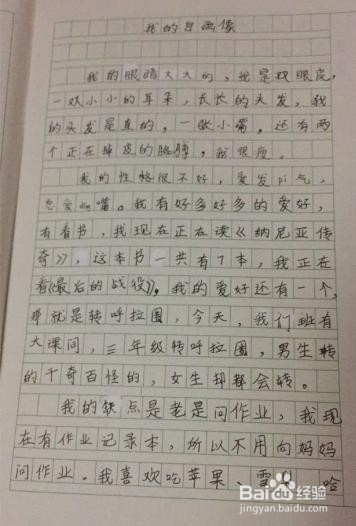 我的自画像
我的眼睛大大的，我是双眼皮，
一双小小的耳朵，长长的头发，我
的头发是直的，一张小嘴，还有两
个正在掉皮的胳膊，我很瘦。
我的性格很不好，爱发pì气，
总爱嘴。我有好多好多的爱好，
有看书，我现在正在读《纳尼亚传
奇》，这本书一共有7本，我正在
看《最后的战役》，我的爱好还有一个，
那就是转呼拉圈，今天，我们班有
大课间，三年级转呼拉圈，男生转
的千奇百怪的，女生却都会转。
我的缺点是老是问作业，我现
在有作业记录本，所以不用向妈妈
问作业。我喜欢吃苹果、雪、哈
Baidu经验
jingyan.baidu.com